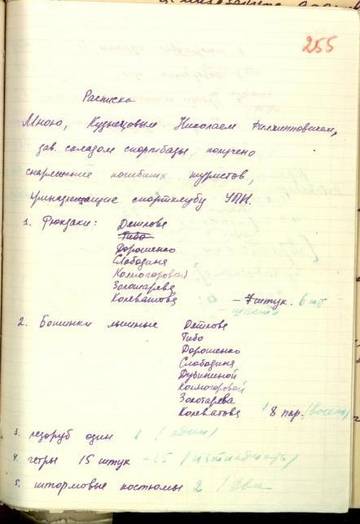 255
Расписка
Мною, Кузнецовым Николаем
зав. складом спортбазы получено
снаряжение погибших туристов,
принадлежащие спортклубу УПИ.
1. Рюкзаки: Дятлова
Тибо
Дорошенко
Слободина
Колмогоровой
Золотарева
Колеватова – 7 штук. 6 шт
2. Ботинки лыжные Дятлова
Тибо
Дорошенко
Слободина
Дубининой
Колмогоровой
Золотарева
Колеватова 8 пар. (восемь)
3. ледоруб один 1 (один)
4. гетры 15 штук – 15 (пятнадцать)
5. штормовые костюмы 2 (два